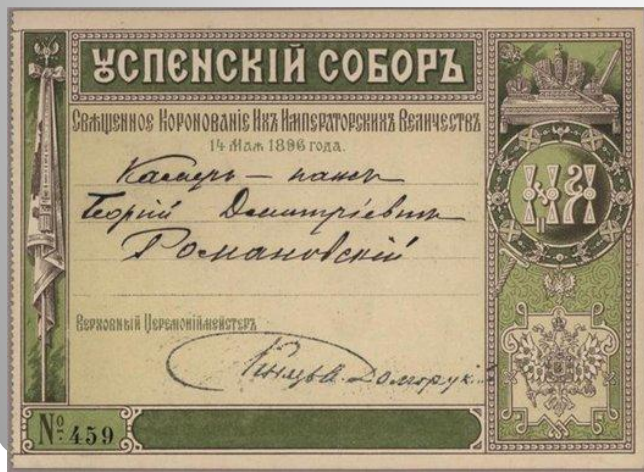 УСПЕНСКІЙ СОБОРЪ
Священное Коронованіе Ихъ Императорскихъ Величествъ
14 Мая 1896 года.
Камеръ – пажъ
Георгій Дмитріевичъ
Романовскій
Верховный Церемоніймейстеръ
Князь Долгорук
№ 459